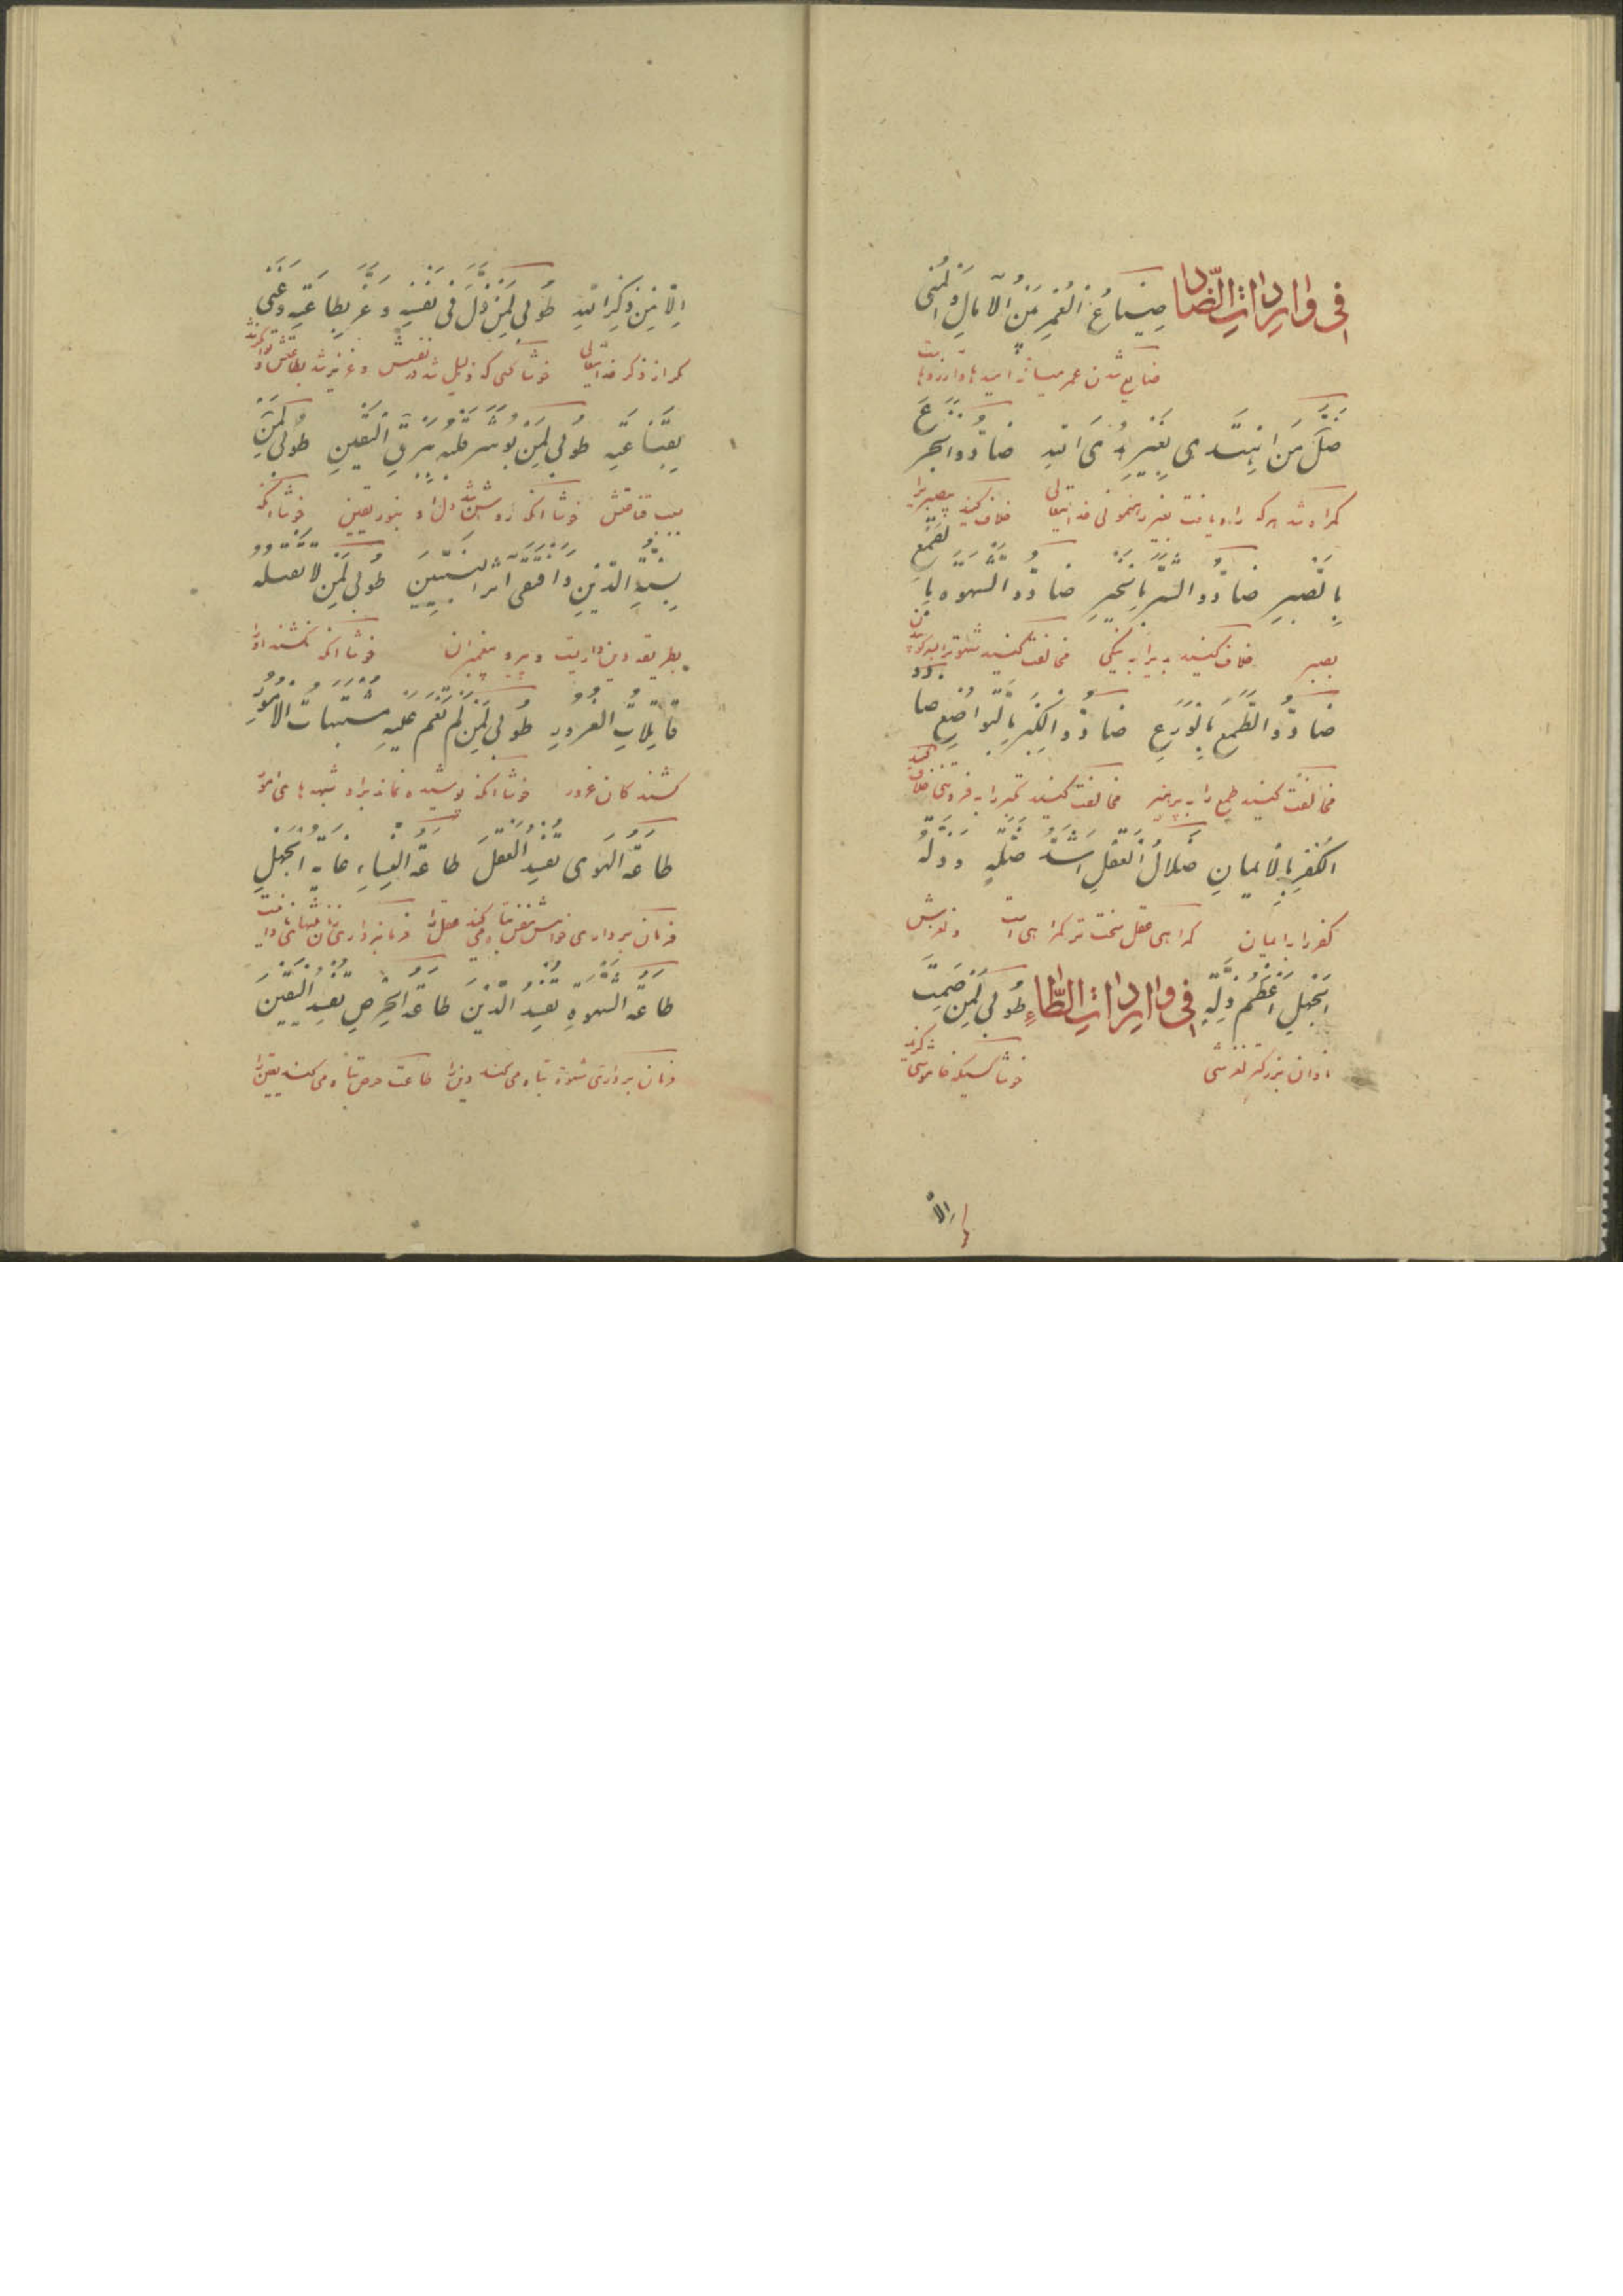 فی واردات الضّاد ضِیَاعُ الْعُمْرِ بَیْنَ الْآمَالِ وَالْمُنَی
ضایع شدن عمر میانه امیدها و آرزوها
ضَلَّ مَنِ اهْتَدَی بِغَیْرِ هُدَی اللهِ ضَادُّوا الْجَزَعَ
گمراه شد هرکه راه یافت بغیر رهنمونی خدایتعالی خلاف کنید
بِالصَّبْرِ ضَادُّوا الشَّرَّ بِالْخَیْرِ ضَادُّوا الشَّهْوَةَ بِالْقَمْعِ
بصبر خلاف کنید بدیرا به نیکی مخالفت کنید
ضَادُّوا الطَّمَعَ بِالْوَرَعِ ضَادُّوا الْکِبْرَ بِالتَّوَاضُعِ ضَادُّوا
مخالفت کنید طمع را به پرهیز مخالفت کنید تکبر را به فروتنی خلاف کنید
الْکُفْرَ بِالْإِیمَانِ ضَلَالُ الْعَقْلِ اَشَدُّ ضَلَّةٍ وَذِلَّةُ
کفر را به ایمان گمراهی عقل سخت تر گمراهی است و لغزش
الْجَهْلِ أَعْظَمُ ذِلَّةٍ فی واردات الطّاء طُوبَی لِمَنْ صَمَتَ
نادان بزرکتر لغزشی خوشا کسیکه خاموشی
إِلَّا
إِلَّا مِنْ ذِکْرِ اللهِ طُوبَی لِمَنْ ذَلَّ فِی نَفْسِهِ وَعَزَّ بِطَاعَتِهِ وَغَنِیَ
مگر از ذکر خدایتعالی خوشا کسی که ذلیل شد در نفسش و عزیز شد بطاعتش
بِقَنَاعَتِهِ طُوبَی لِمَنْ بُوشِرَ قَلْبُهُ بِبَرْدِ الْیَقِینِ طُوبَی لِمَنْ
بسبب قناعتش خوشا آنکه روشن شد دل او بنور یقین خوشا آنکه
بِسُنَّةِ الدِّینِ وَاقْتَفَی أَثَرَ النَّبِیِّینَ طُوبَی لِمَنْ لَا تَقْتُلُهُ
بطریقه دین و پیرو پیغمبران خوشا آنکه نکشند او را
قَاتِلَاتُ الْغُرُورِ طُوبَی لِمَنْ لَمْ تَغُمَّ عَلَیْهِ مُشْتَبِهَاتُ الْأُمُورِ
کشندکان غرور خوشا آنکه پوشیده نماند براو شبهه های امور
طَاعَةُ الْهَوَی تُفْسِدُ الْعَقْلَ طَاعَةُ النِّسَاءِ غَایَةُ الْجَهْلِ
فرمان برداری خواهش نفس تباه میکند عقل را فرمانبرداری زنان نهایت
طَاعَةُ الشَّهْوَةِ تُفْسِدُ الدِّینَ طَاعَةُ الْحِرْصِ تُفْسِدُ الْیَقِینَ
فرمان برداری شهوة تباه می کند دین را طاعت حرص تباه می کند یقین را